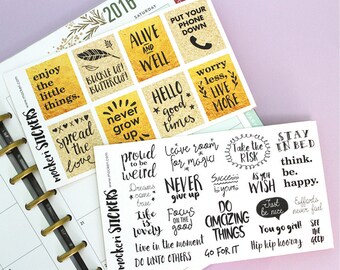 2016
SATURDAY
enjoy
the
little
things.
BUCKLE UP,
BUTTERCUP!
ALIVE
AND
WELL
PUT YOUR
PHONE
DOWN
spread
the
love
never
grow
up
HELLO
good
times
worry
less,
LIVE
MORE
mockeri STICKERS
mockeri STICKERS
proud
to be
weird
Leave room
for magic!
Take the
RISK
STAY
IN BED
Dreams
come
true
NEVER
GIVE UP
AS YOU
WISH
think.
be.
happy.
Life
is
lovely
Focus
on the
good
DO
AMAZING
THINGS
Just
be nice
Efforts
never fail
Live in the moment
GO FOR IT
You go girl!
SEE
THE
GOOD
DO UNTO OTHERS
Hip hip hooray